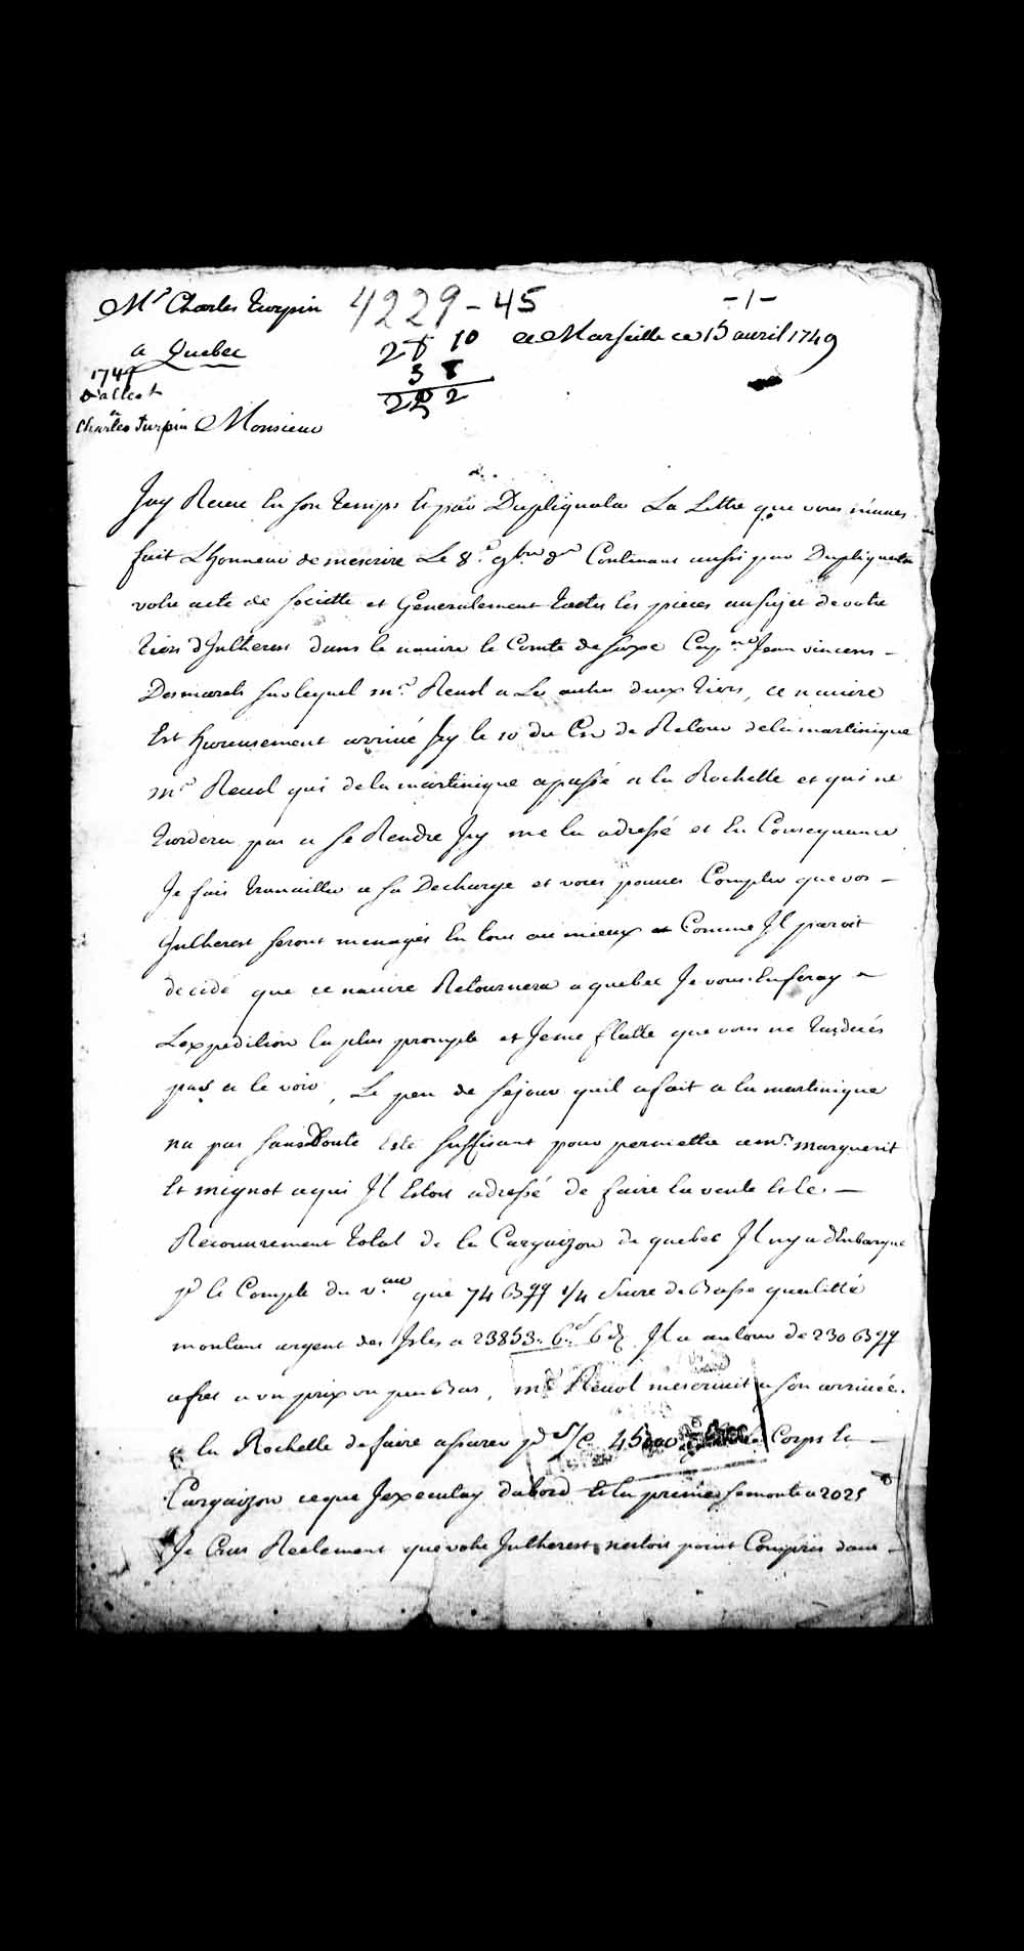 Mr Charles Turpin
a Quebec
4229-45
-1-
a Marseille ce 15 avril 1749
28 10
3 8
1749
Dallest
a
Charles Turpin
Monsieur
Jay Receu En son temps Et par Dupliquata La Lettre que vous mavés
fait Lhonneur de mescrire Le 8e 9bre dr Contenant aussi par Dupliquata
votre acte de Societté et Generalement touttes les pieces au sujet de votre
tiers d'Jntherest dans le navire le Comte de Saxe Capne Jean vincens -
Desmarets sur lequel mr Revol a Les autres deux tiers, ce navire
Est hureusement arrivé Jcy le 10 du Cr de Retour de la martinique
mr Revol qui de la martinique a passé a la Rochelle et qui ne
tardera pas a se Rendre Jcy me la adressé et En Consequance
Je fais travailler a sa Decharge et vous pouvés Compter que vos -
Jntherest seront menagés En tout au mieux et Comme Jl paroit
decidé que ce navire Retournera a quebec Je vous En feray -
Lexpedition la plus prompte et Je me flatte que vous ne tarderés
pas a le voir, Le peu de sejour quil a fait a la martinique
na pas sans Doute Esté suffisant pour permettre a mrs marguerit
Et mignot a qui Jl Estoit adressé de faire la vente Et le -
Recouvrement total de la Cargaizon de quebec Jl ny a d'Enbarqué
pr le Compte du vau que 74 B qq 1/4 Sucre de Basse qualitté
montant argent des Jsles a 23853" 6s 6d. Jl a autour de 230 B qq
a fret a un prix un peu Bas, mr Revol mescrivit a son arrivée
a la Rochelle de faire assurer pr s/C 45000 Corps Et -
Cargaizon ce que Jexecutay dabord Et la prime se monte a 2025
Je Crus Reelement que votre Jntherest nestoit point Compris dans -